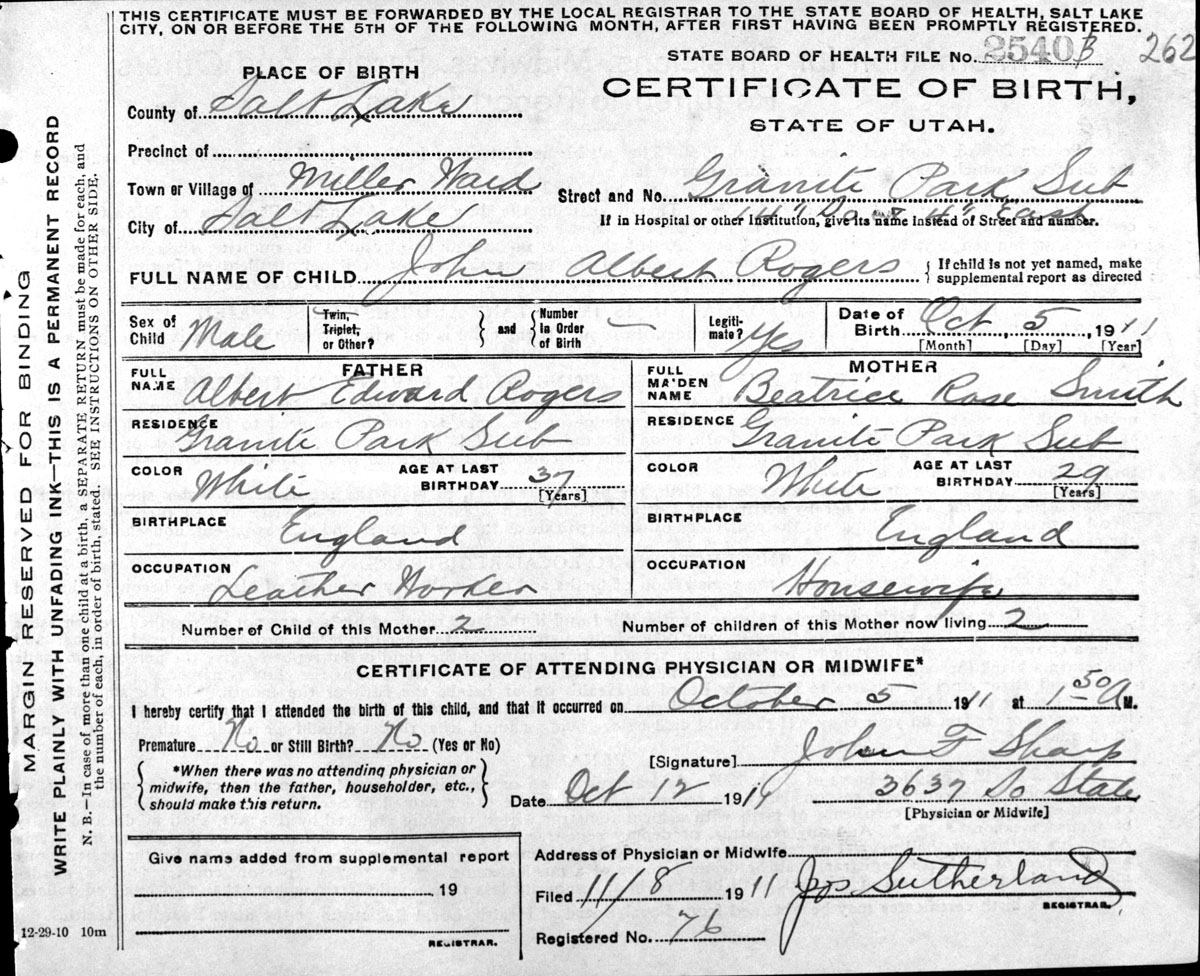 THIS CERTIFICATE MUST BE FORWARDED BY THE LOCAL REGISTRAR TO THE STATE BOARD OF HEALTH, SALT LAKE
CITY, ON OR BEFORE THE 5TH OF THE FOLLOWING MONTH, AFTER FIRST HAVING BEEN PROMPTLY REGISTERED.
STATE BOARD OF HEALTH FILE No. 2540B 262
PLACE OF BIRTH
CERTIFICATE OF BIRTH,
STATE OF UTAH.
County of Salt Lake
Precinct of
Town or Village of Miller Ward
Street and No. Granite Park Sub
City of Salt Lake
If in Hospital or other Institution, give its name instead of Street and number.
FULL NAME OF CHILD John Albert Rogers
{ If child is not yet named, make
supplemental report as directed
Sex of Child Male
Twin, Triplet, or Other? } and { Number in Order of Birth —
Legitimate? Yes
Date of Birth Oct 5, 1911
[Month] [Day] [Year]
FATHER
FULL NAME Albert Edward Rogers
RESIDENCE Granite Park Sub
COLOR White AGE AT LAST BIRTHDAY 37 [Years]
BIRTHPLACE England
OCCUPATION Leather Worker
MOTHER
FULL MAIDEN NAME Beatrice Rose Smith
RESIDENCE Granite Park Sub
COLOR White AGE AT LAST BIRTHDAY 29 [Years]
BIRTHPLACE England
OCCUPATION Housewife
Number of Child of this Mother 2 Number of children of this Mother now living 2
CERTIFICATE OF ATTENDING PHYSICIAN OR MIDWIFE*
I hereby certify that I attended the birth of this child, and that it occurred on October 5 1911 at 1 50 A M.
Premature No or Still Birth? No (Yes or No)
*When there was no attending physician or
midwife, then the father, householder, etc.,
should make this return.
[Signature] John F Sharp
Date Oct 12 191 3637 So State
[Physician or Midwife]
Give name added from supplemental report
19
REGISTRAR.
Address of Physician or Midwife
Filed 11/8 1911 Jos Sutherland
REGISTRAR.
Registered No. 76
12-29-10 10m
MARGIN RESERVED FOR BINDING
WRITE PLAINLY WITH UNFADING INK—THIS IS A PERMANENT RECORD
N. B.—In case of more than one child at a birth, a SEPARATE RETURN must be made for each, and
the number of each, in order of birth, stated. SEE INSTRUCTIONS ON OTHER SIDE.